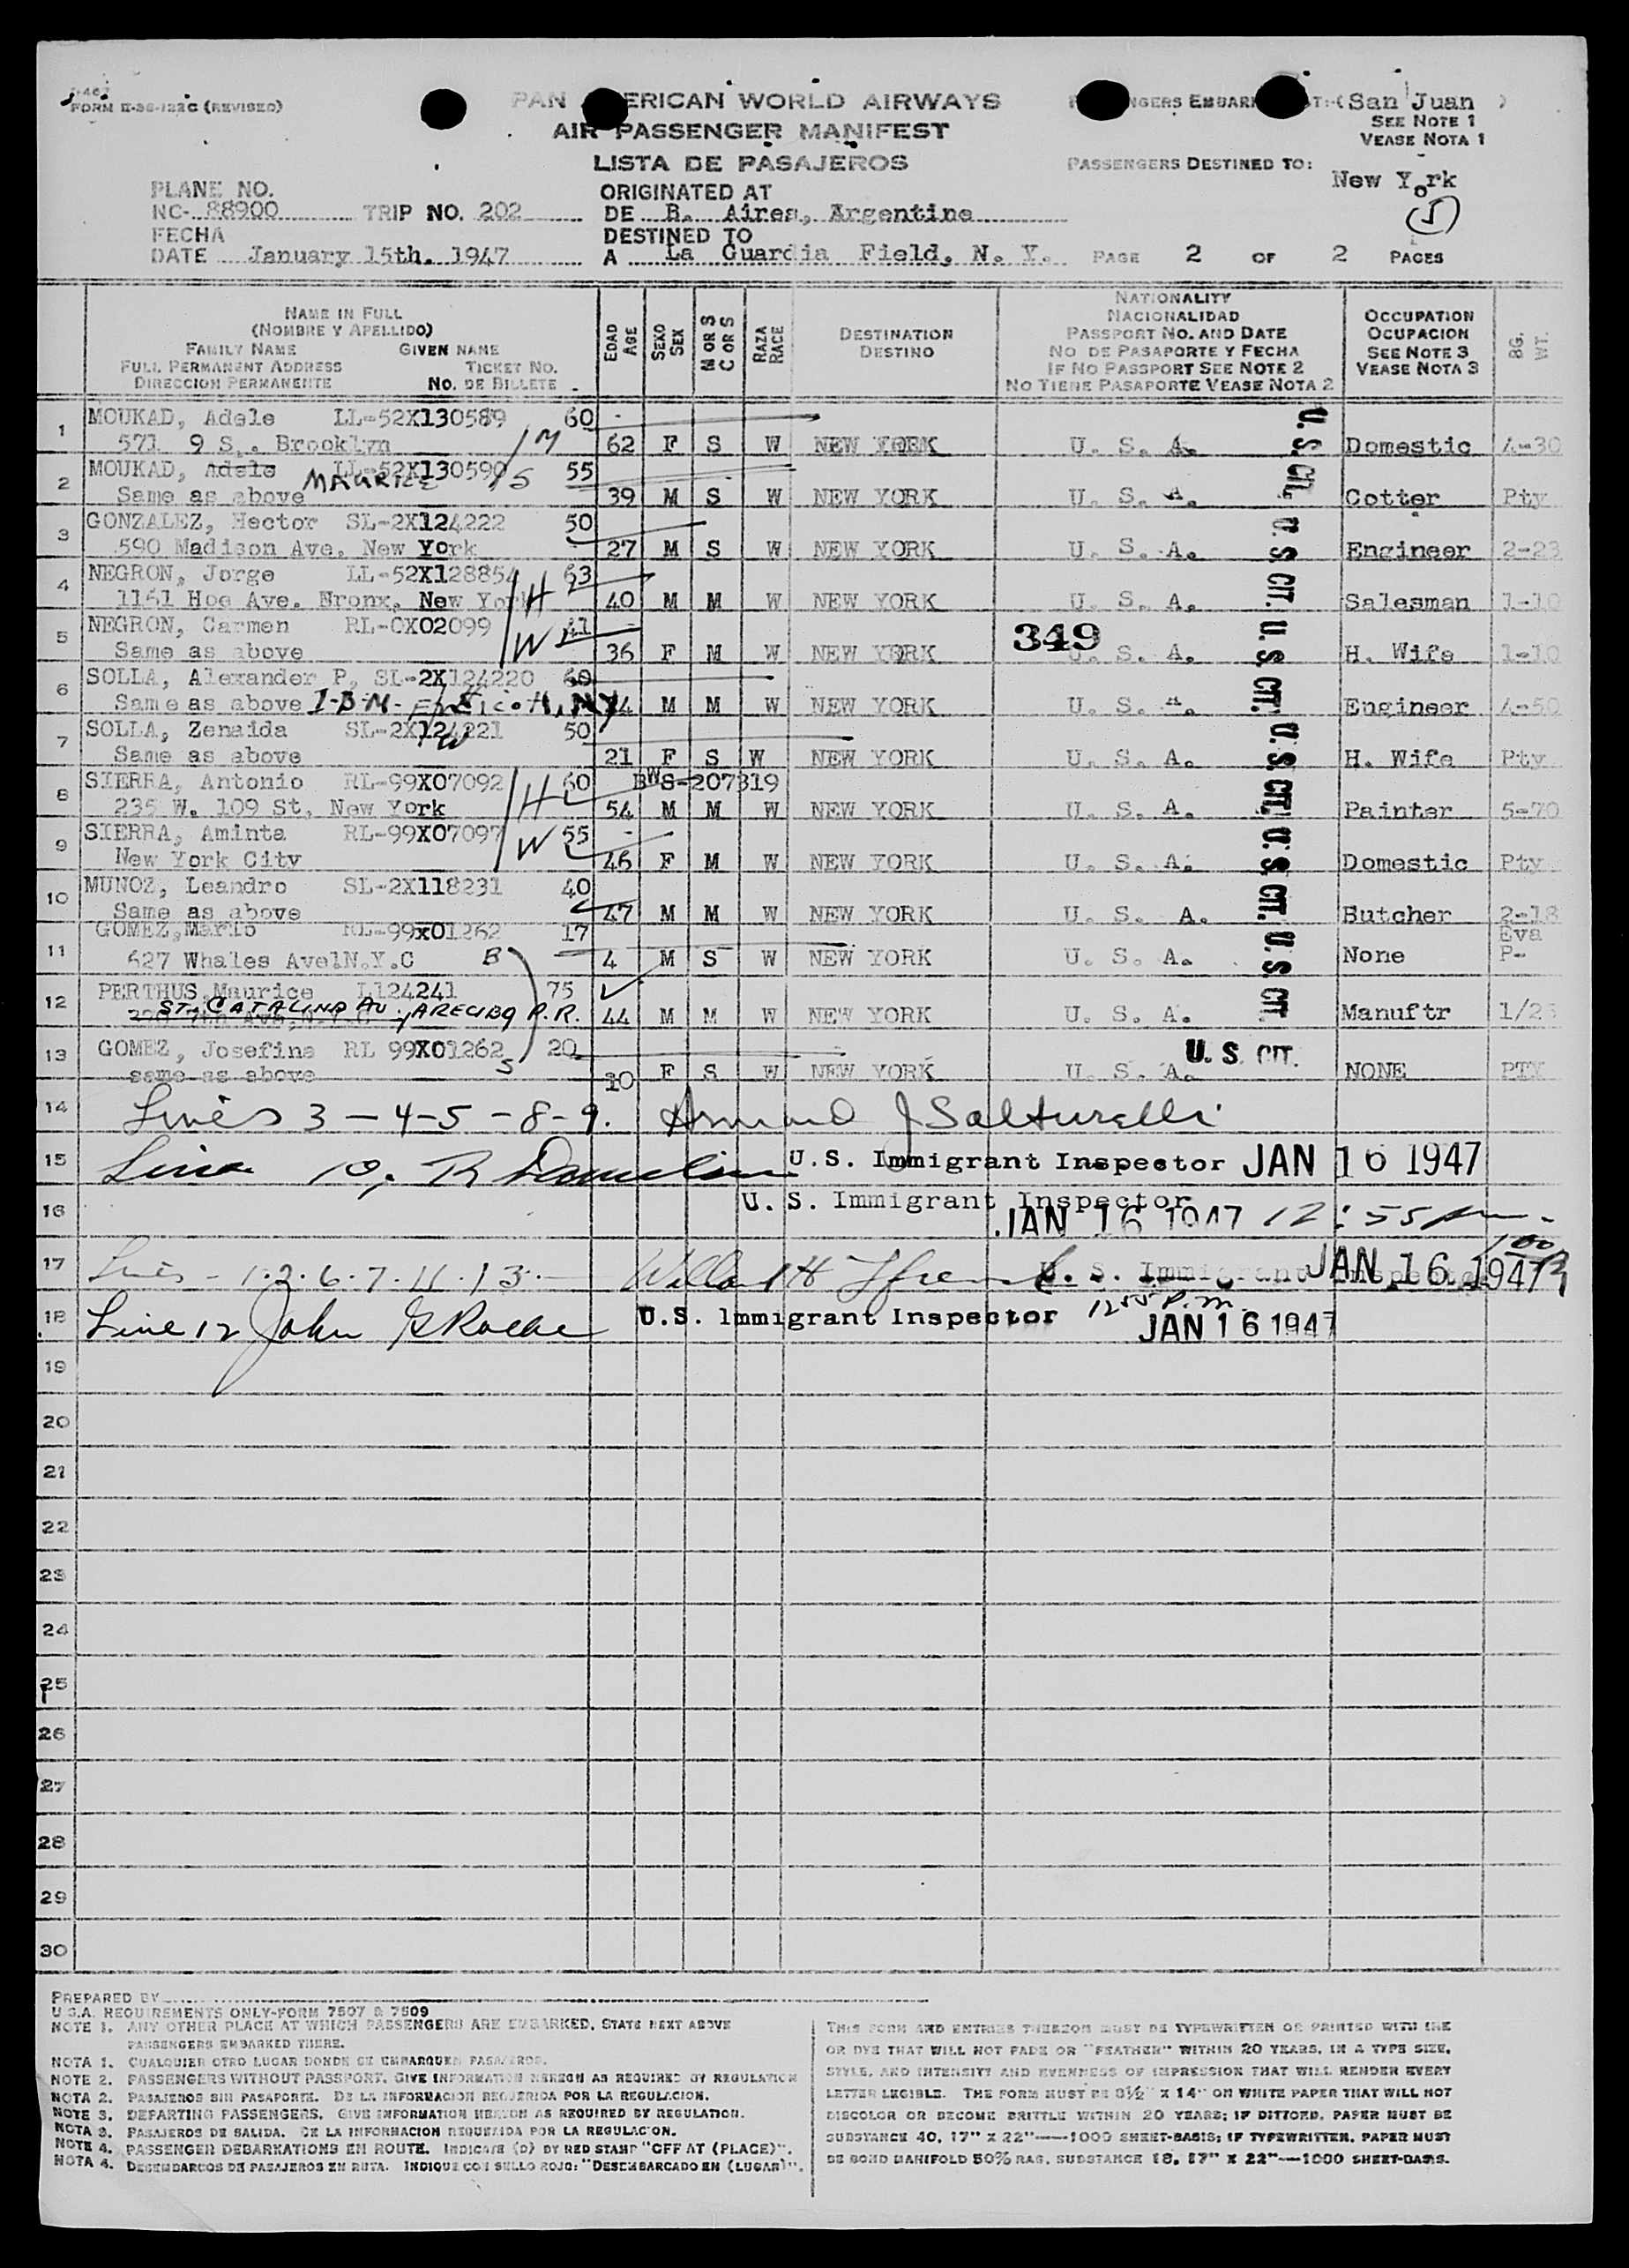 FORM E-36-122C (REVISED)
PAN AMERICAN WORLD AIRWAYS
AIR PASSENGER MANIFEST
LISTA DE PASAJEROS
(San Juan )
SEE NOTE 1
VEASE NOTA 1
PASSENGERS DESTINED TO:
New York
(5)
PLANE NO.
NC- 88900 TRIP NO. 202
ORIGINATED AT
DE B. Aires, Argentina
FECHA
DATE January 15th. 1947
DESTINED TO
A La Guardia Field, N. Y.
PAGE 2 OF 2 PAGES
NAME IN FULL
(NOMBRE Y APELLIDO)
FAMILY NAME GIVEN NAME
FULL PERMANENT ADDRESS TICKET NO.
DIRECCION PERMANENTE NO. DE BILLETE
EDAD AGE
SEXO SEX
M OR S C OR S
RAZA RACE
DESTINATION
DESTINO
NATIONALITY
NACIONALIDAD
PASSPORT NO. AND DATE
NO DE PASAPORTE Y FECHA
IF NO PASSPORT SEE NOTE 2
NO TIENE PASAPORTE VEASE NOTA 2
OCCUPATION
OCUPACION
SEE NOTE 3
VEASE NOTA 3
BG. WT.
1 MOUKAD, Adele LL-52X130589 60
571 9 S., Brooklyn / M 62 F S W NEW YORK U. S. A. Domestic 4-30
2 MOUKAD, Adele LL-52X130590 55
Same as above MAURICE /S 39 M S W NEW YORK U. S. A. Cotter Pty
3 GONZALEZ, Hector SL-2X124222 50
590 Madison Ave. New York 27 M S W NEW YORK U. S. A. Engineer 2-23
4 NEGRON, Jorge LL-52X128854 63
1161 Hoe Ave. Bronx, New York /H 40 M M W NEW YORK U. S. A. Salesman 1-10
5 NEGRON, Carmen RL-CX02099 41
Same as above /W 36 F M W NEW YORK 349 U. S. A. H. Wife 1-10
6 SOLLA, Alexander P. SL-2X124220 60
Same as above I-B-M- Endicott, NY M M W NEW YORK U. S. A. Engineer 4-50
7 SOLLA, Zenaida SL-2X124221 50
Same as above W 21 F S W NEW YORK U. S. A. H. Wife Pty
8 SIERRA, Antonio RL-99X07092 60 BWS-207319
235 W. 109 St, New York /H 54 M M W NEW YORK U. S. A. Painter 5-70
9 SIERRA, Aminta RL-99X07097 55
New York City /W 46 F M W NEW YORK U. S. A. Domestic Pty
10 MUNOZ, Leandro SL-2X118231 40
Same as above 47 M M W NEW YORK U. S. A. Butcher 2-18
GOMEZ, Mario RL-99x01262 17 Eva
11 627 Whales AvelN.Y.C B 4 M S W NEW YORK U. S. A. None P-
12 PERTHUS, Maurice L124241 75
ST. CATALINA AV., ARECIBO P.R. 44 M M W NEW YORK U. S. A. Manuftr
13 GOMEZ, Josefina RL 99X01262 20
same as above S 10 F S W NEW YORK U. S. A. NONE PTY
U. S. CIT. U. S. CIT. U. S. CIT. U. S. CIT. U. S. CIT. U. S. CIT.
U. S. CIT.
14 Lines 3-4-5-8-9.
15 Line 10, U.S. Immigrant Inspector JAN 16 1947
16 U. S. Immigrant Inspector
JAN 16 1947 12:55 pm.
17 Lines - 1.2.6.7.11.13. U. S. Immigrant Inspector JAN 16 1947
18 Line 12 John U.S. Immigrant Inspector 1255 P.M.
JAN 16 1947
19
20
21
22
23
24
25
26
27
28
29
30
PREPARED BY
U.S.A. REQUIREMENTS ONLY-FORM 7507 & 7509
NOTE 1. ANY OTHER PLACE AT WHICH PASSENGERS ARE EMBARKED, STATE NEXT ABOVE
PASSENGERS EMBARKED THERE.
NOTA 1. CUALQUIER OTRO LUGAR DONDE SE EMBARQUEN PASAJEROS.
NOTE 2. PASSENGERS WITHOUT PASSPORT. GIVE INFORMATION HEREON AS REQUIRED BY REGULATION
NOTA 2. PASAJEROS SIN PASAPORTE. DE LA INFORMACION REQUERIDA POR LA REGULACION.
NOTE 3. DEPARTING PASSENGERS. GIVE INFORMATION HEREON AS REQUIRED BY REGULATION.
NOTA 3. PASAJEROS DE SALIDA. DE LA INFORMACION REQUERIDA POR LA REGULACION.
NOTE 4. PASSENGER DEBARKATIONS EN ROUTE. INDICATE (D) BY RED STAMP "OFF AT (PLACE)".
NOTA 4. DESEMBARCOS DE PASAJEROS EN RUTA. INDIQUE CON SELLO ROJO: "DESEMBARCADO EN (LUGAR)".
THIS FORM AND ENTRIES THEREON MUST BE TYPEWRITTEN OR PRINTED WITH INK
OR DYE THAT WILL NOT FADE OR "FEATHER" WITHIN 20 YEARS, IN A TYPE SIZE,
STYLE, AND INTENSITY AND EVENNESS OF IMPRESSION THAT WILL RENDER EVERY
LETTER LEGIBLE. THE FORM MUST BE 8½" X 14" ON WHITE PAPER THAT WILL NOT
DISCOLOR OR BECOME BRITTLE WITHIN 20 YEARS; IF DITTOED, PAPER MUST BE
SUBSTANCE 40, 17" X 22"—1000 SHEET-BASIS; IF TYPEWRITTEN, PAPER MUST
BE BOND MANIFOLD 50% RAG, SUBSTANCE 18, 17" X 22"—1000 SHEET-BASIS.